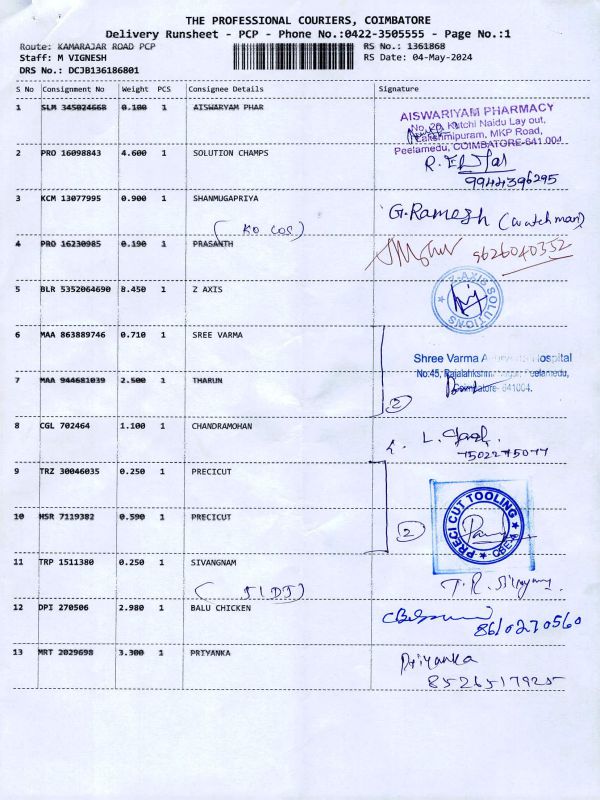 THE PROFESSIONAL COURIERS, COIMBATORE
Delivery Runsheet - PCP - Phone No.:0422-3505555 - Page No.:1
Route: KAMARAJAR ROAD PCP
RS No.: 1361868
Staff: M VIGNESH
RS Date: 04-May-2024
DRS No.: DCJB136186801
S No Consignment No Weight PCS Consignee Details Signature
1 SLM 345024668 0.100 1 AISWARYAM PHAR
AISWARIYAM PHARMACY
No. 20, Kutchi Naidu Lay out,
Lakshmipuram, MKP Road,
Peelamedu, COIMBATORE-641 004
2 PRO 16098843 4.600 1 SOLUTION CHAMPS
9944396295
3 KCM 13077995 0.900 1 SHANMUGAPRIYA
G.Ramesh (watchman)
4 PRO 16230985 0.190 1 PRASANTH
9626040352
5 BLR 5352064690 8.450 1 Z AXIS
Z-AXIS SOLUTIONS
6 MAA 863889746 0.710 1 SREE VARMA
Shree Varma Hospital
No:45, Rajalahkshmi Nagar, Peelamedu,
Coimbatore- 641004.
7 MAA 944681039 2.500 1 THARUN
2
8 CGL 702464 1.100 1 CHANDRAMOHAN
7502275077
9 TRZ 30046035 0.250 1 PRECICUT
PRECI CUT TOOLING
CBE-4
10 HSR 7119382 0.590 1 PRECICUT
2
11 TRP 1511380 0.250 1 SIVANGNAM
12 DPI 270506 2.980 1 BALU CHICKEN
8610270560
13 MRT 2029698 3.300 1 PRIYANKA
Priyanka
8526517925